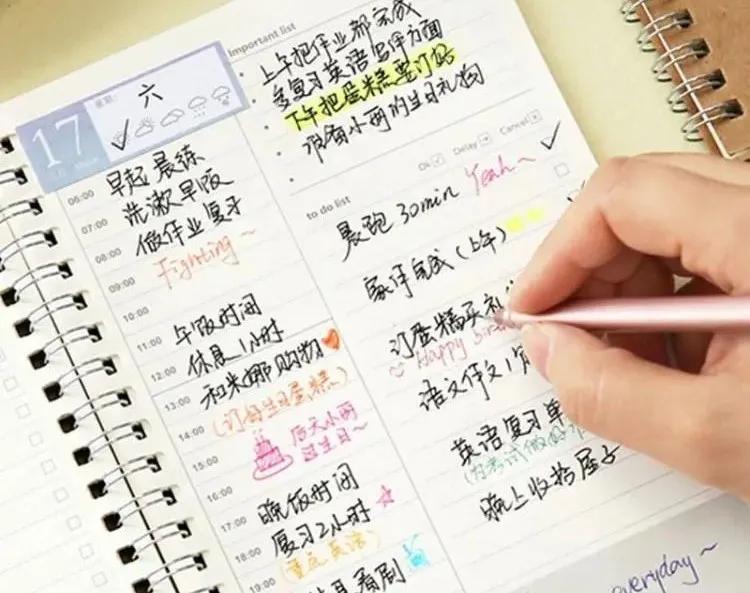 17
星期:
六
06:00
07:00
08:00
09:00
10:00
11:00
12:00
13:00
14:00
15:00
16:00
17:00
18:00
19:00
早起 晨练
洗漱 早饭
做作业 复习
Fighting~
午饭时间
休息1小时
和米娜购物
(订好生日蛋糕)
后天小雨
过生日~
晚饭时间
复习2小时
(重点英语)
看剧
Important list
上午把作业都完成
多复习英语写作方面
下午把蛋糕要订好
准备小雨的生日礼物
Ok Delay Cancel
to do list
晨跑 30min Yeah~
家作完成(上午)
订蛋糕买礼
Happy
语文作文1
英语复习单
(为考试做好
晚上收拾屋子
everyday~
everyday~